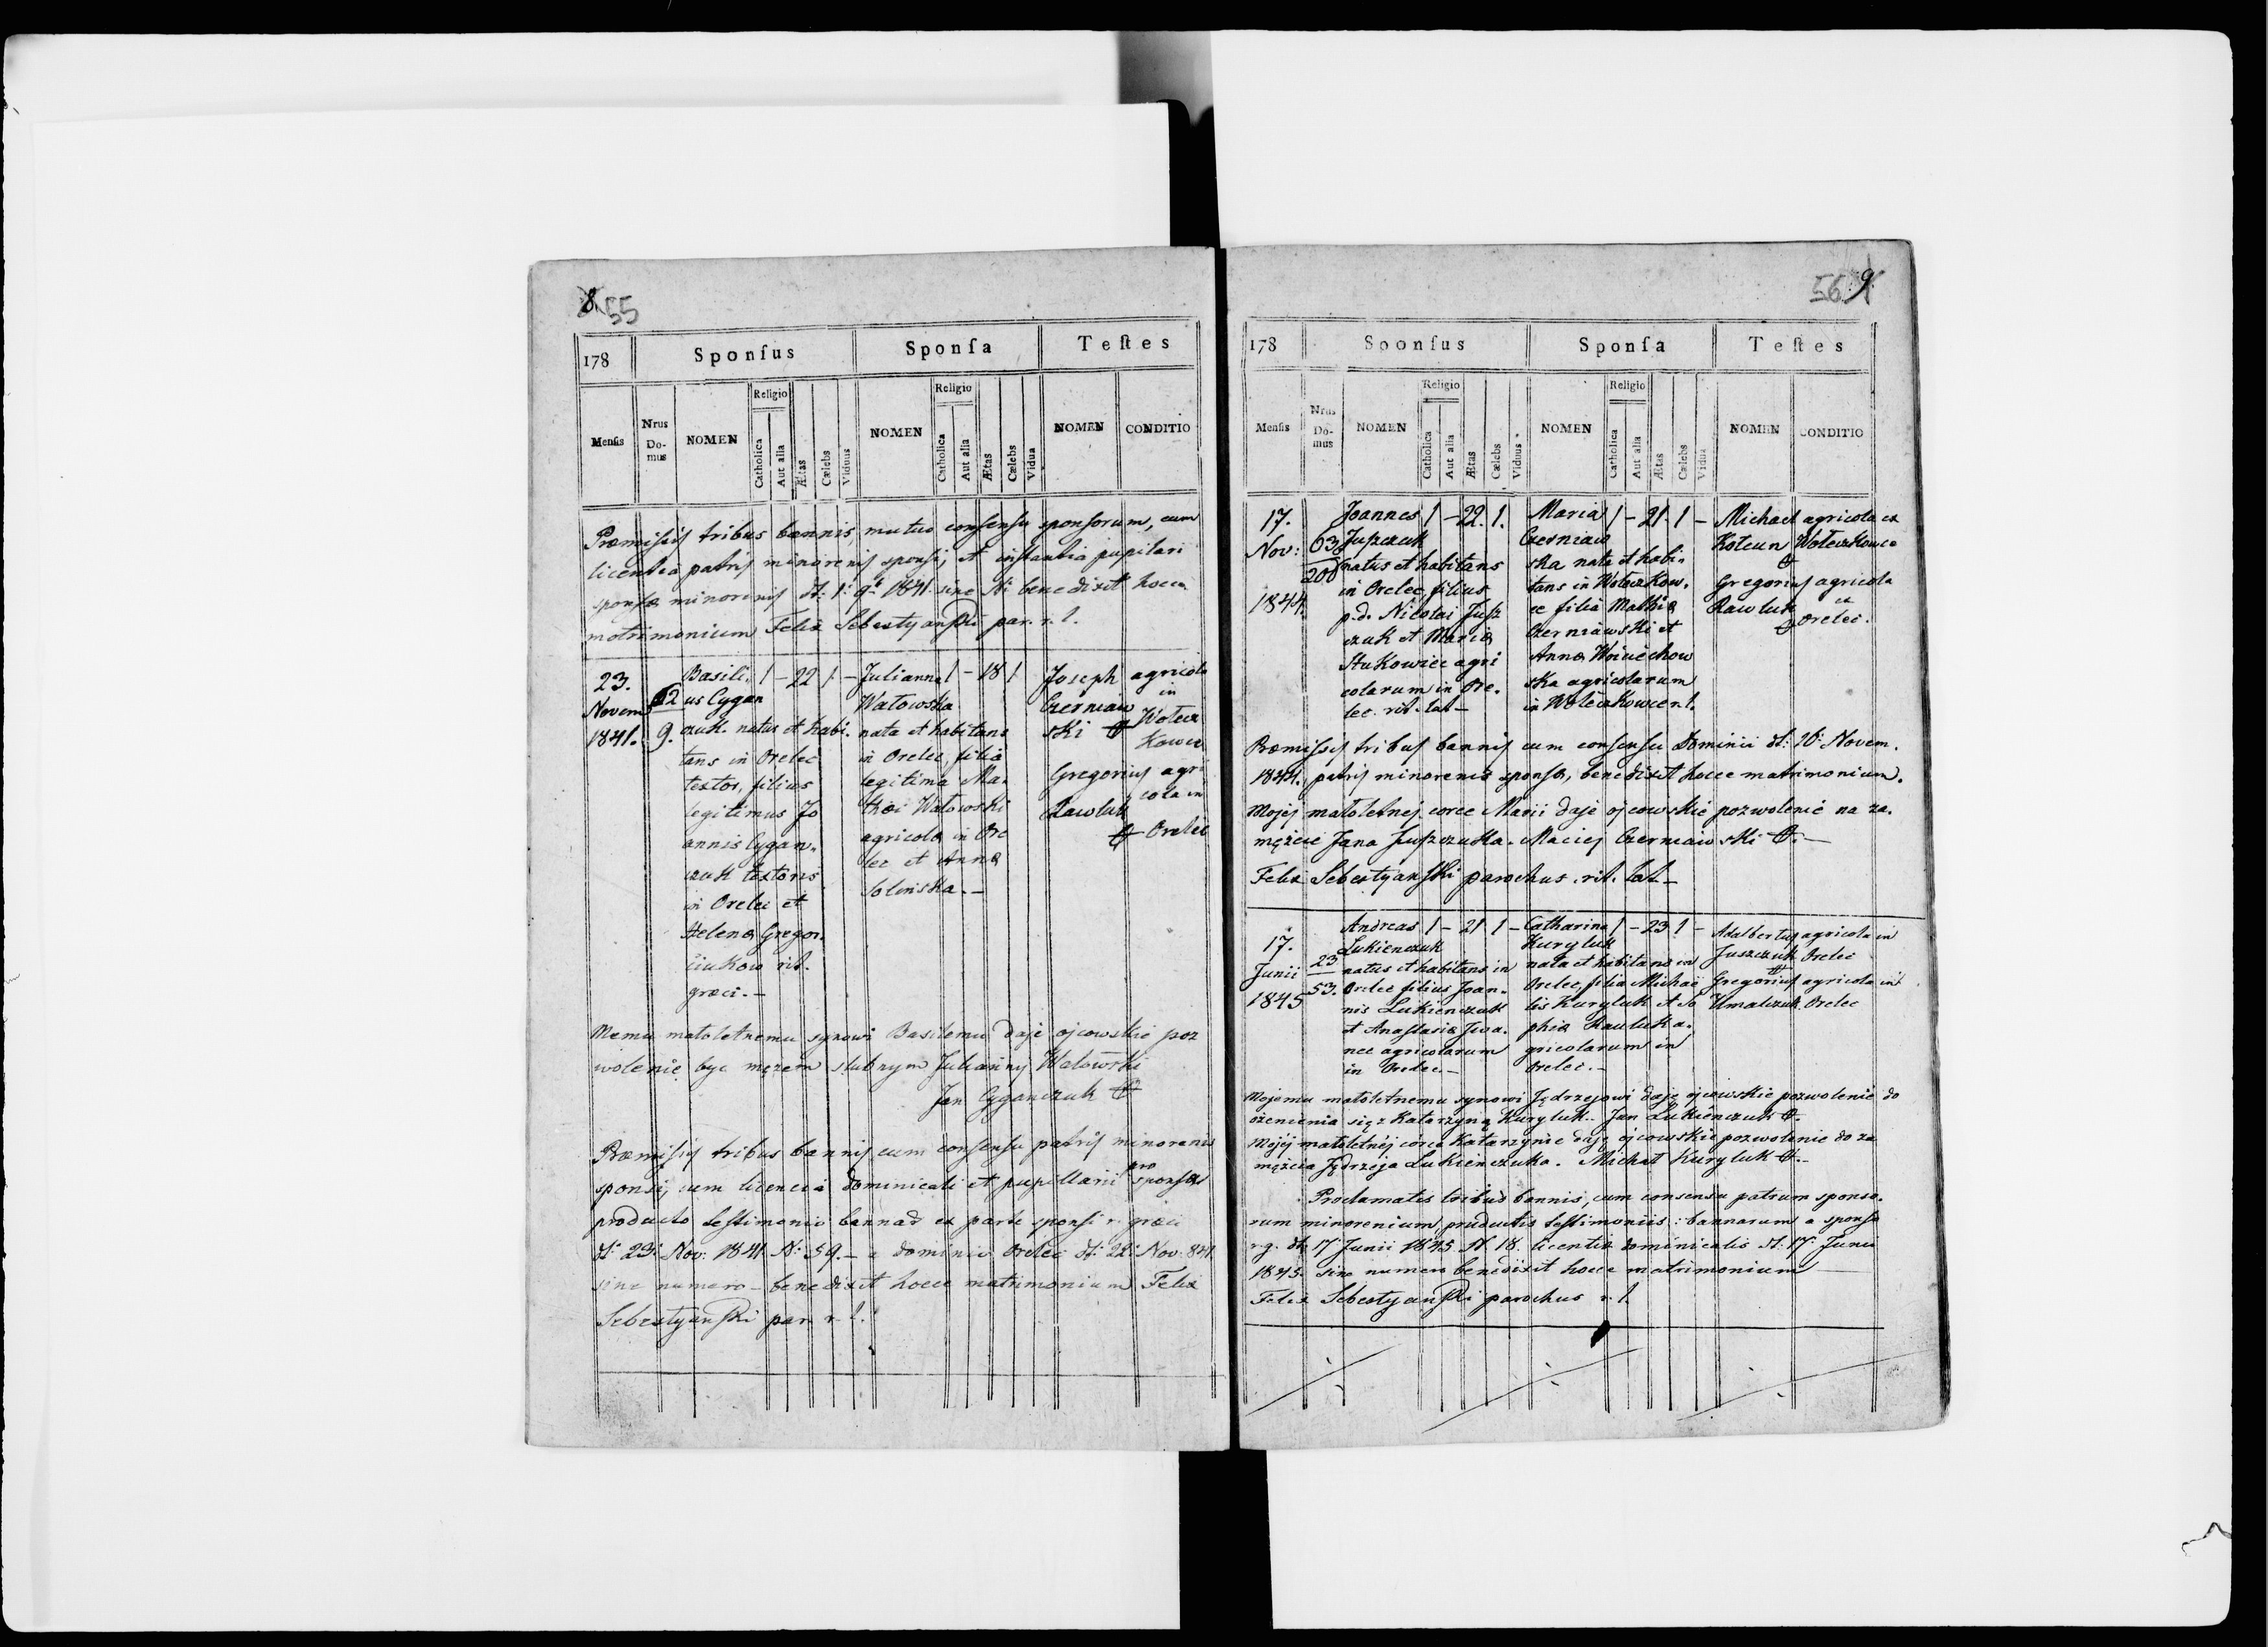 8 55
178 Sponſus Sponſa Teſtes
Menſis Nrus Do-mus NOMEN Religio Catholica Aut alia Ætas Cælebs Viduus NOMEN Religio Catholica Aut alia Ætas Cælebs Vidua NOMEN CONDITIO
Præmiſsis tribus bannis, mutuo conſensu sponſorum, cum
licentia patris minorenis sponſi, et instantia pupilari
sponſæ minorenis dt: 1: 9b 1841 sine N: benedixit hocce
matrimonium Felix Sebestyanſki par. r. l.
23.
Novem
1841.
62
9.
Basili, 1 - 22 1 -
us Cygan
czuk. natus et habi.
tans in Orelec
textor, filius
legitimus Jo
annis Cygan-
czuk textoris
in Orelec et
Helenæ Gregor.
ciukow rit.
græci. -
Julianna 1 - 18 1
Watowska
nata et habitans
in Orelec, filia
legitima Ma-
thæi Watowski
agricolæ in Ore
lec et Annæ
Solinska. -
Joseph agricola
Czerniaw in
ski Wołcz
kowce
Gregorius agri
cola in
Rawluk
Orelec
Memu małoletnemu synowi Basilemu daje ojcowskie poz
wolenie być mężem slubnym Julianny Watowski
Jan Cyganczuk
Præmiſsis tribus bannis, cum conſensu patris minorenis
sponsi, cum licencia dominicali et pupillarii pro sponſæ
producto teſtimonio bannar ex parte sponſi r. græci
dt: 23: Nov: 1841 N: 59. - a dominio Orelec dt: 22: Nov: 841.
sine numero - benedixit hocce matrimonium Felix
Sebestyanſki par. r. l.
56 9
178 Sponſus Sponſa Teſtes
Menſis Nrus Do-mus NOMEN Religio Catholica Aut alia Ætas Cælebs Viduus NOMEN Religio Catholica Aut alia Ætas Cælebs Vidua NOMEN CONDITIO
17.
Nov:
1844.
63
200
Joannes 1 - 22. 1.
Juszczuk
natus et habitans
in Orelec, filius
p.d. Nicolai Juſz
czuk et Mariæ
Stukowiec agri
colarum in Ore.
lec. rit. lat -
Maria 1 - 21. 1 -
Czerniaw
ska nata et habi-
tans in Wołczkow.
ce filia Mathiæ
Czerniawski et
Annæ Woiciechow
ska agricolarum
in Wołczkowce r. l.
Michael agricola ex
Kołcun Wołczkowce
Gregorius agricola
Rawluk ex
Orelec.
Præmiſsis tribus bannis cum conſensu Dominii dt: 16: Novem.
1844. patris minorenis sponſæ, benedixit hocce matrimonium.
Mojej małoletnej corce Marii daje ojcowskie pozwolenie na za.
mężcie Jana Juſzczuka. Maciej Czerniawski
Felix Sebestyanſki parochus. rit. lat -
17.
Junii
1845
23
53.
Andreas 1 - 21 1 -
Lukienczuk
natus et habitans in
Orelec filius Joan-
nis Lukienczuk
et Anaſtasiæ Iwa-
nec agricolarum
in Orelec. -
Catharina 1 - 23 1 -
Kuryluk
nata et habitans in
Orelec, filia Michae
lis Kuryluk et So
phiæ Rauluk a.
gricolarum in
Orelec. -
Adalbertus agricola in
Juszczuk Orelec
Gregorius agricola in
Umańczuk Orelec
Mojemu małoletnemu synowi Jędrzejowi daję ojcowskie pozwolenie do
ożenienia się z Katarzyną Kuryluk. Jan Lukienczuk
Mojéj małoletnéj córce Katarzynie daję ojcowskie pozwolenie do za
mężcia Jędrzeja Lukienczuka. Michał Kuryluk
Proclamatis tribus bannis, cum consensu patrum sponso.
rum minorenium, productis teſtimoniis: bannarum a sponso
r.g. dt 17 Junii 1845 N. 18. licentiæ dominicalis dt: 17: Junii
1845. sine numero benedixit hocce matrimonium
Felix Sebestyanſki parochus r. l.